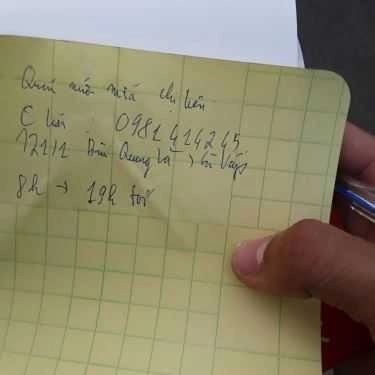 Quán nước mía chị hiền
C hiền : 0981 414245
121/1 Bùi Quang Là, Gò Vấp
8h → 19h tối